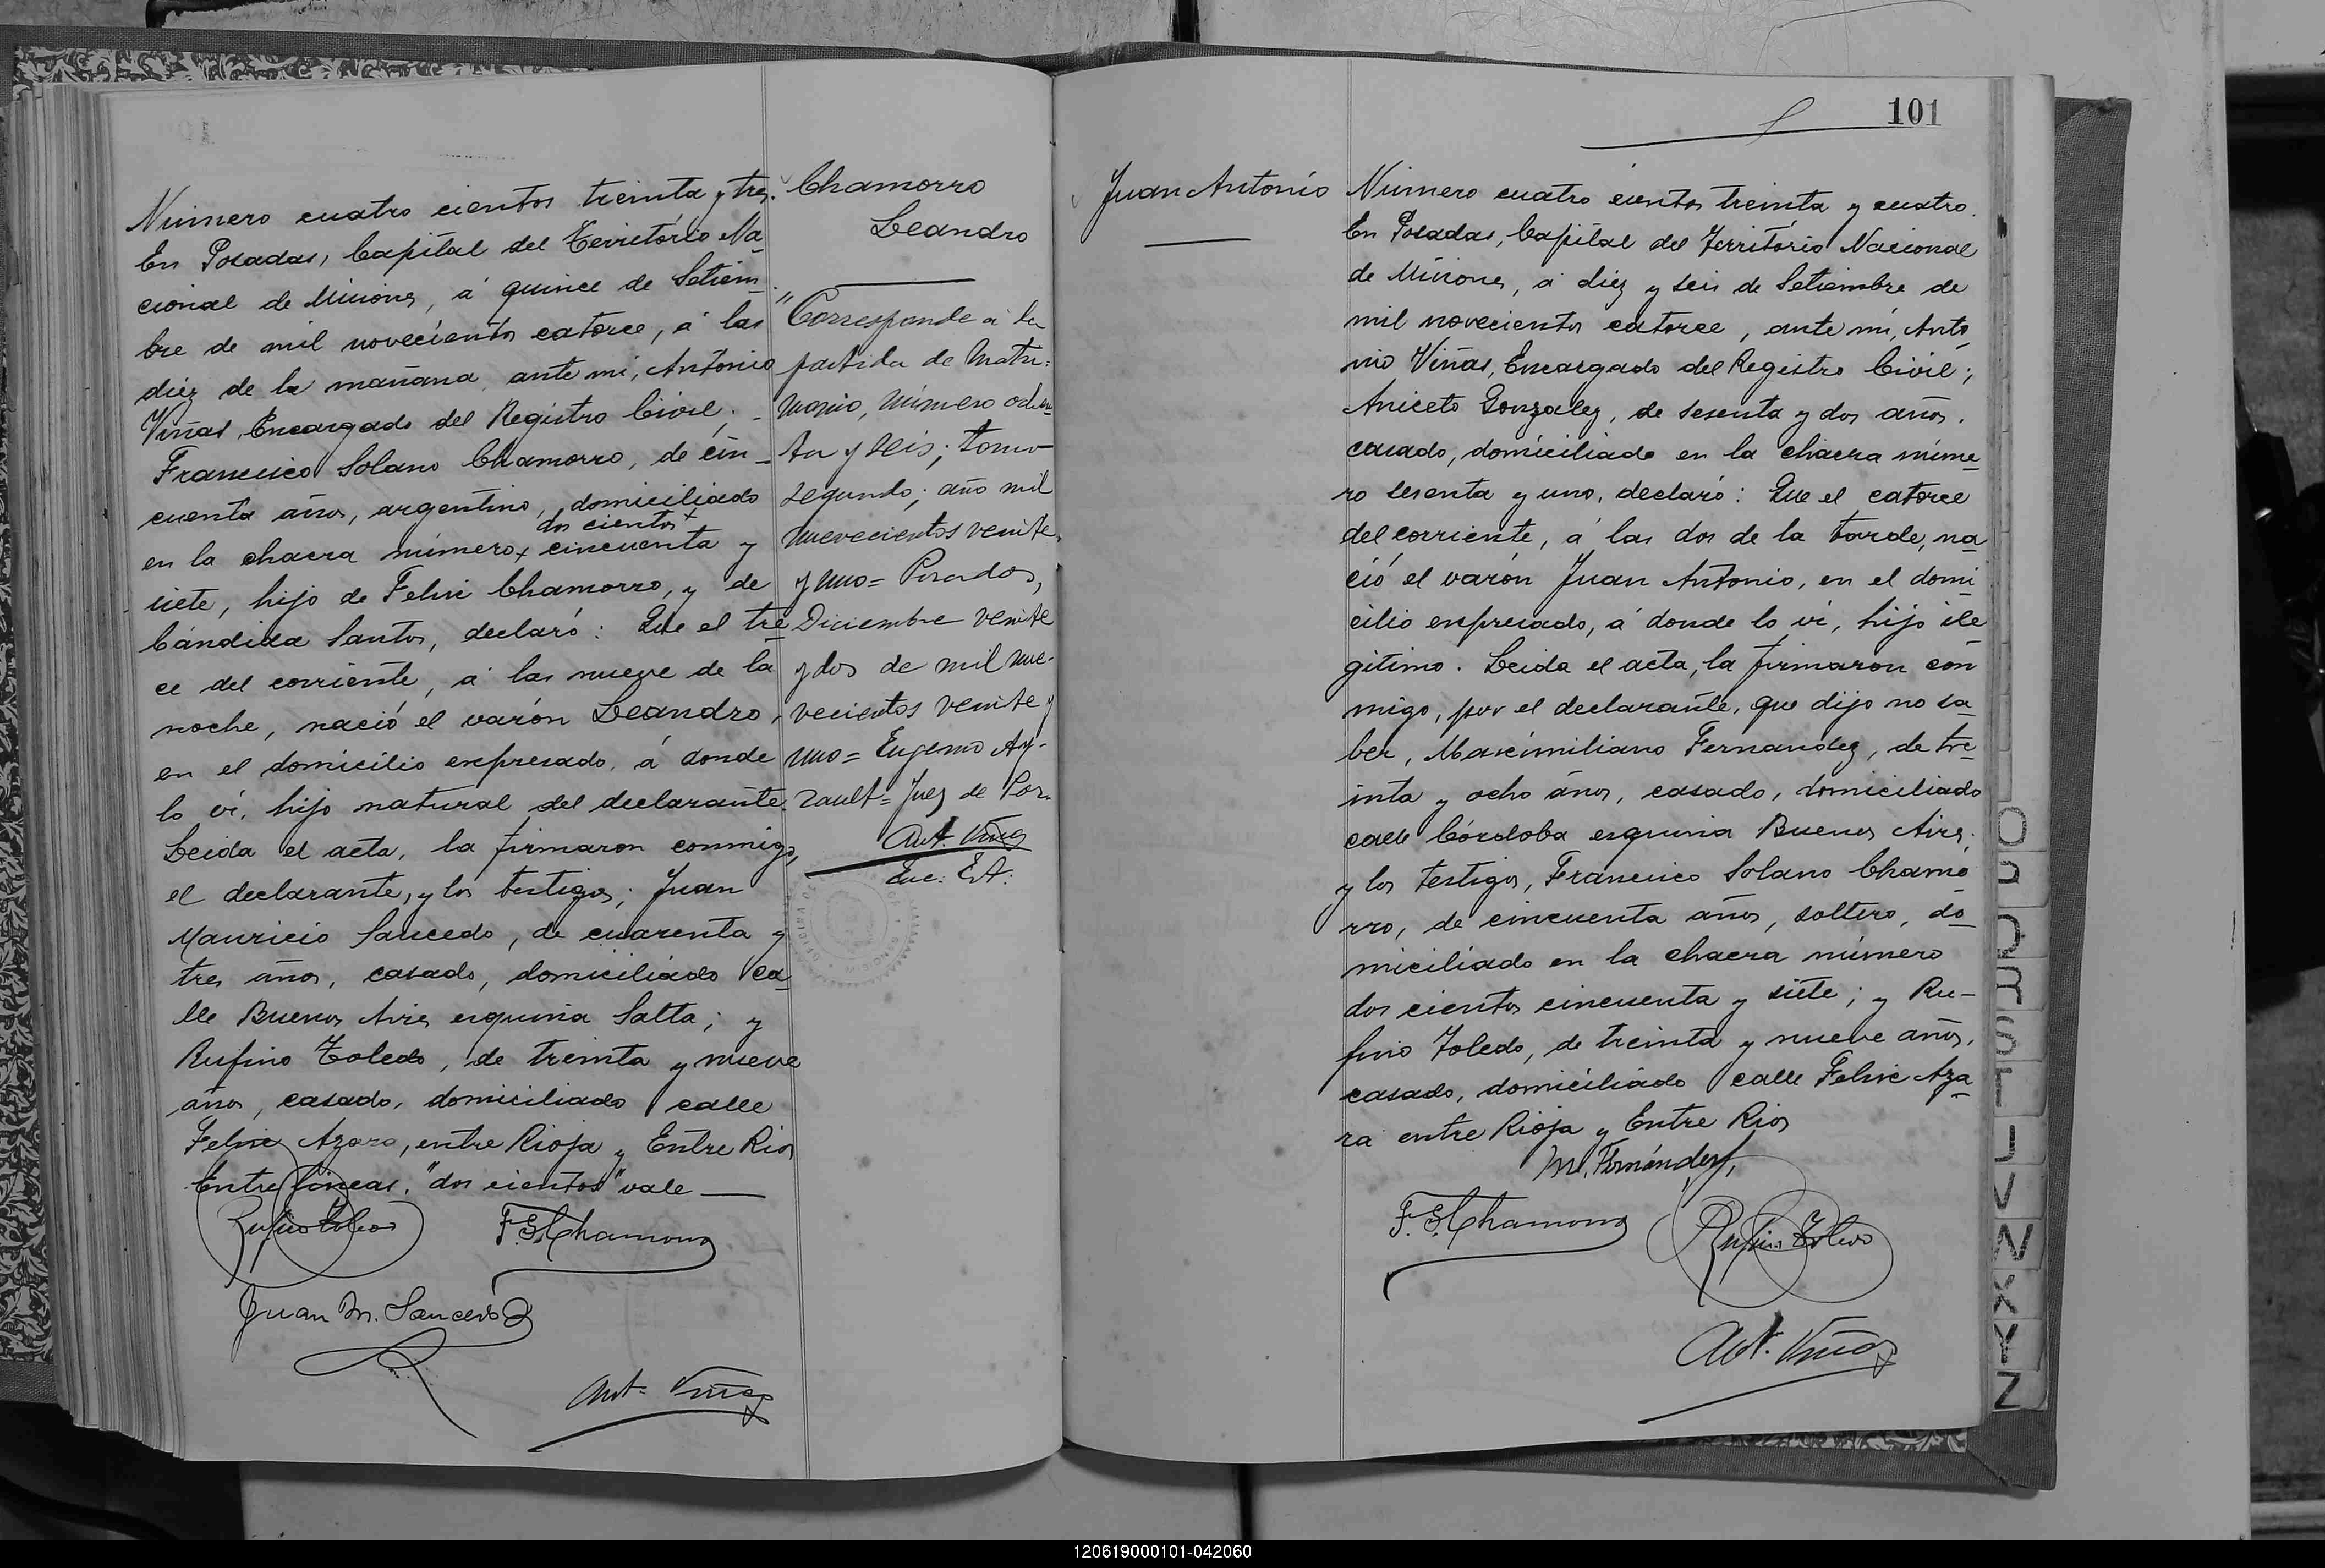 Número cuatro cientos treinta y tres.
En Posadas, Capital del Territorio Na-
cional de Misiones, á quince de Setiem-
bre de mil novecientos catorce, á las
diez de la mañana, ante mi, Antonio
Viñas, Encargado del Registro Civil;
Francisco Solano Chamorro, de cin-
cuenta años, argentino, domiciliado
dos cientos +
en la chacra número x cincuenta y
siete, hijo de Felix Chamorro, y de
Cándida Santos, declaró: Que el tre-
ce del corriente, á las nueve de la
noche, nació el varón Leandro,
en el domicilio expresado, á donde
lo ví, hijo natural del declarante.
Leida el acta, la firmaron conmigo,
el declarante, y los testigos; Juan
Mauricio Saucedo, de cuarenta y
tres años, casado, domiciliado ca-
lle Buenos Aires esquina Salta; y
Rufino Toledo, de treinta y nueve
años, casado, domiciliado calle
Felix Azara, entre Rioja y Entre Rios
Entre líneas, "dos cientos" vale —
Rufino Toledo F. S. Chamorro
Juan M. Saucedo
Ant. Viñas
Chamorro
Leandro
"Corresponde á la
partida de Matri-
monio, número ochen-
ta y seis; tomo
segundo; año mil
nuevecientos veinte
y uno = Posadas,
Diciembre veinte
y dos de mil nue-
vecientos veinte y
uno = Eugenio
Juez de Paz
Ant. Viñas
Enc. Est.
101
Juan Antonio
Número cuatro cientos treinta y cuatro.
En Posadas, Capital del Territorio Nacional
de Misiones, á diez y seis de Setiembre de
mil novecientos catorce, ante mi, Anto-
nio Viñas, Encargado del Registro Civil;
Aniceto Gonzalez, de sesenta y dos años,
casado, domiciliado en la chacra núme-
ro sesenta y uno, declaró: Que el catorce
del corriente, á las dos de la tarde, na-
ció el varón Juan Antonio, en el domi-
cilio expresado, á donde lo ví, hijo ile-
gítimo. Leida el acta, la firmaron con
migo, por el declarante, que dijo no sa-
ber, Maximiliano Fernandez, de tre-
inta y ocho años, casado, domiciliado
calle Córdoba esquina Buenos Aires;
y los testigos, Francisco Solano Chamo-
rro, de cincuenta años, soltero, do-
miciliado en la chacra número
dos cientos cincuenta y siete; y Ru-
fino Toledo, de treinta y nueve años,
casado, domiciliado calle Felix Aza-
ra entre Rioja y Entre Rios
M. Fernández
F. S. Chamorro Rufino Toledo
Ant. Viñas
O
Q
R
S
T
U
V
W
X
Y
Z
120619000101-042060